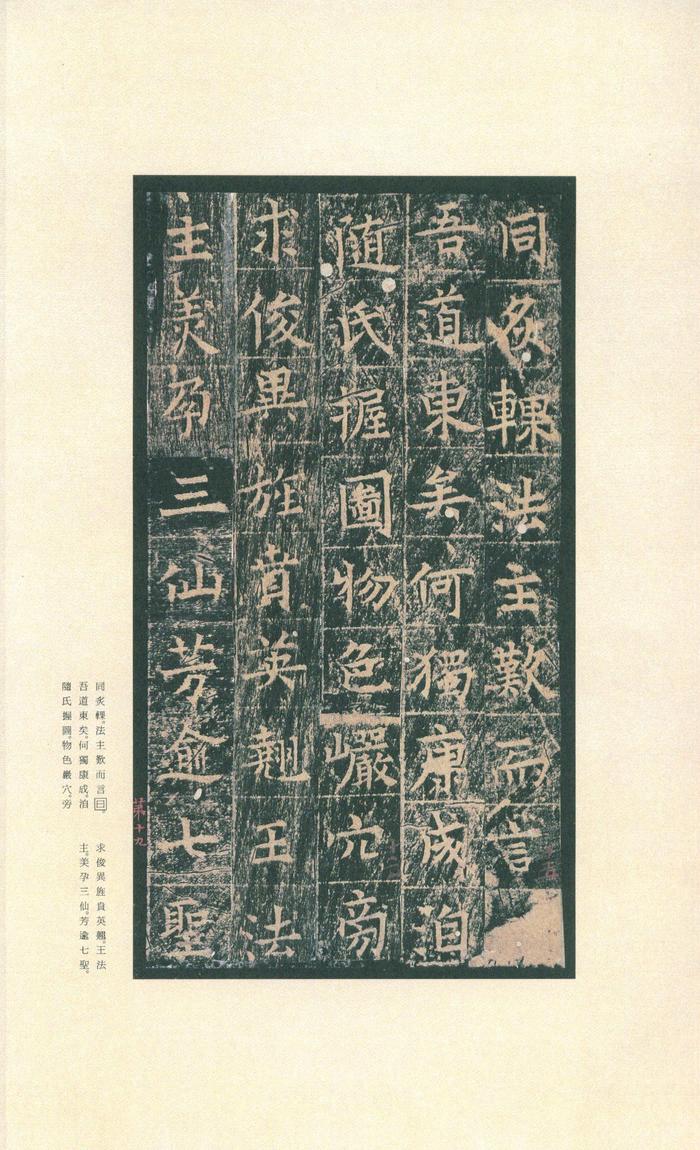 同炙輠法主歎而言
吾道東矣何獨康成洎
随氏握圖物色巖穴旁
求俊異旌賁英翹王法
主美孕三仙芳逾七聖
第十九
同炙輠。法主歎而言曰。
吾道東矣。何獨康成。洎
隨氏握圖。物色巖穴。旁
求俊異旌賁英翹。王法
主。美孕三仙。芳逾七聖。